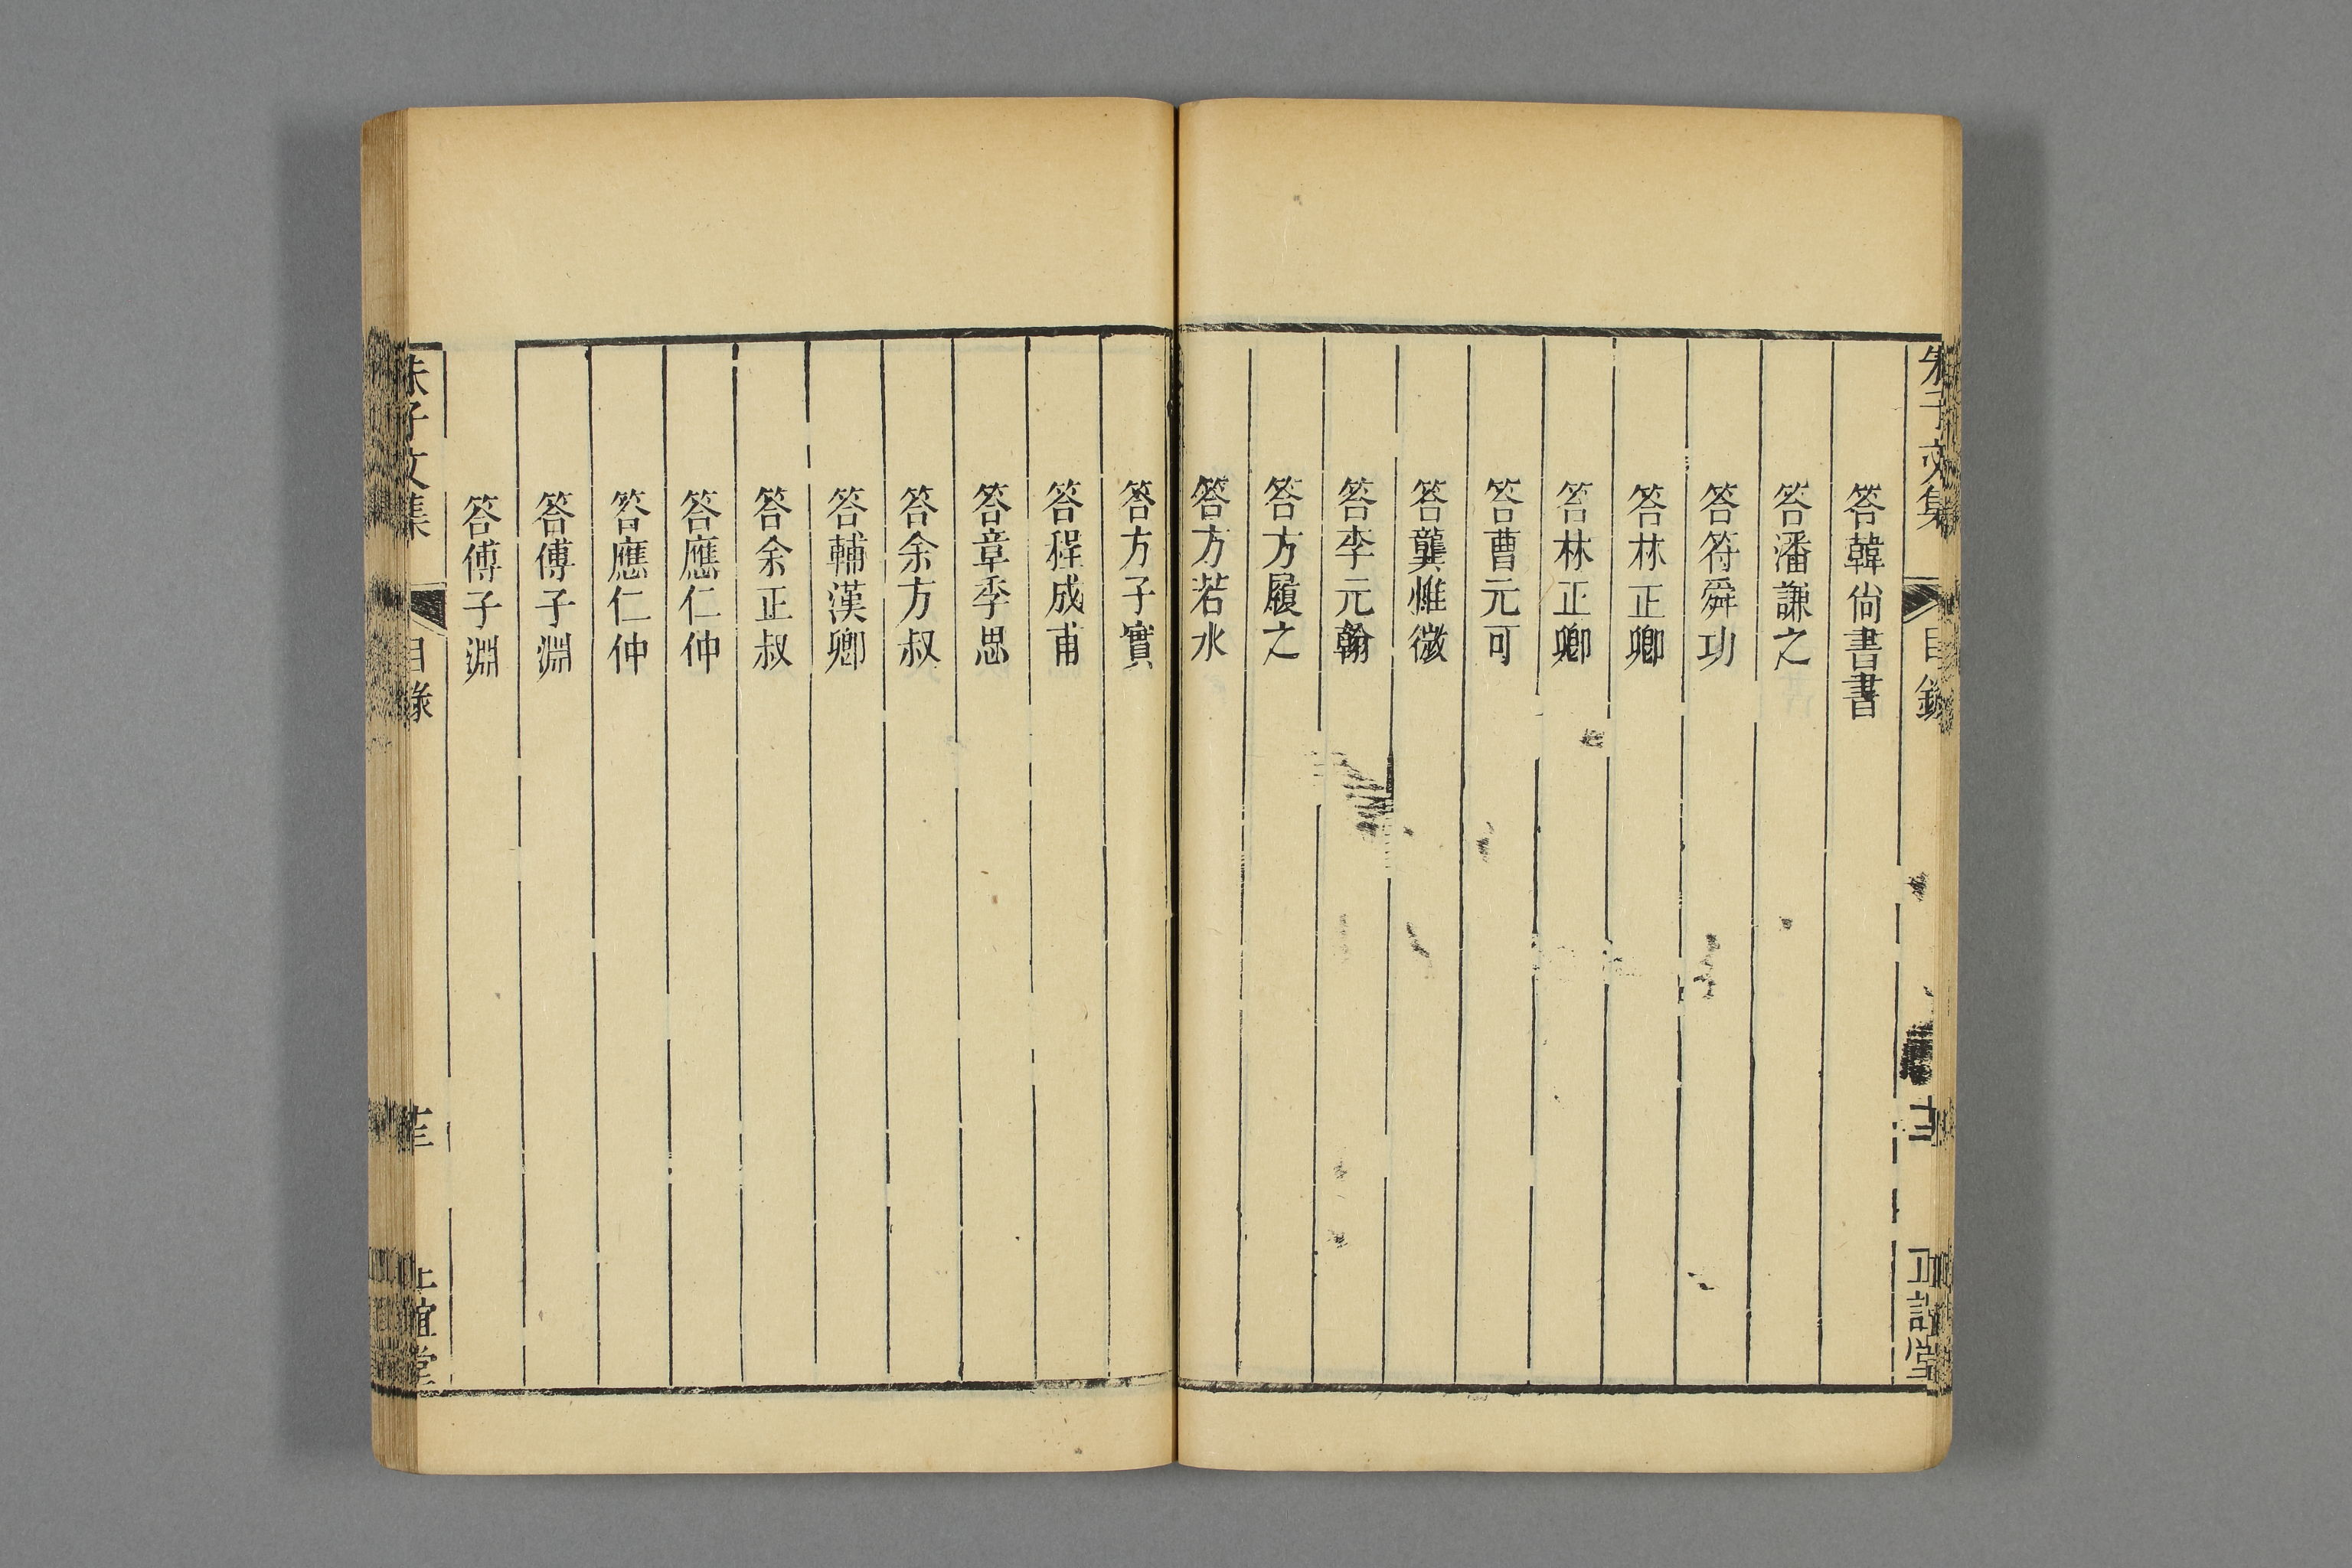 朱子文集 目錄 正誼堂
答韓尙書書
答潘謙之
答符舜功
答林正卿
答林正卿
答曹元可
答龔惟微
答李元翰
答方履之
答方若水
答方子實
答程成甫
答章季思
答余方叔
答輔漢卿
答余正叔
答應仁仲
答應仁仲
答傅子淵
答傅子淵
朱子文集 目錄 正誼堂